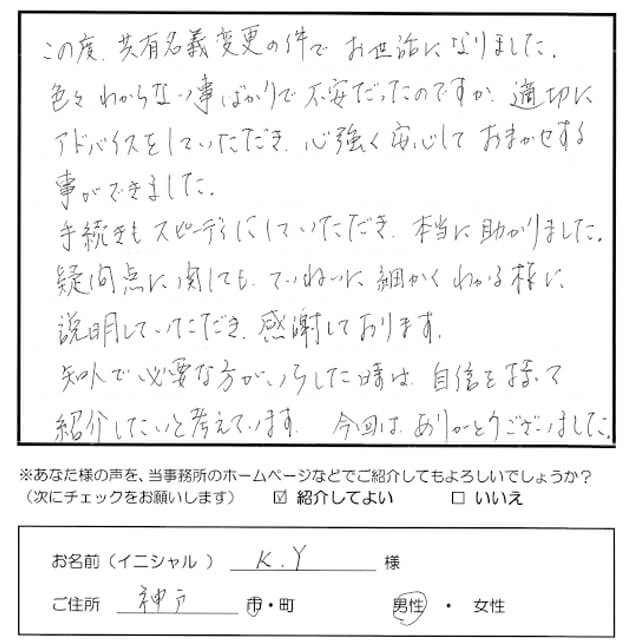 この度、共有名義変更の件で お世話になりました。
色々 わからない事ばかりで 不安だったのですが、適切に
アドバイスをしていただき、心強く 安心して おまかせする
事ができました。
手続きも スピーディにしていただき、本当に助かりました。
疑問点に関しても、ていねいに 細かく わかる様に
説明していただき、感謝しております。
知人で 必要な方がいらした時は、自信を持って
紹介したいと考えています。 今回は、ありがとうございました。
※あなた様の声を、当事務所のホームページなどでご紹介してもよろしいでしょうか?
(次にチェックをお願いします) ☑ 紹介してよい □ いいえ
お名前(イニシャル) K.Y 様
ご住所 神戸 市・町 男性 ・ 女性